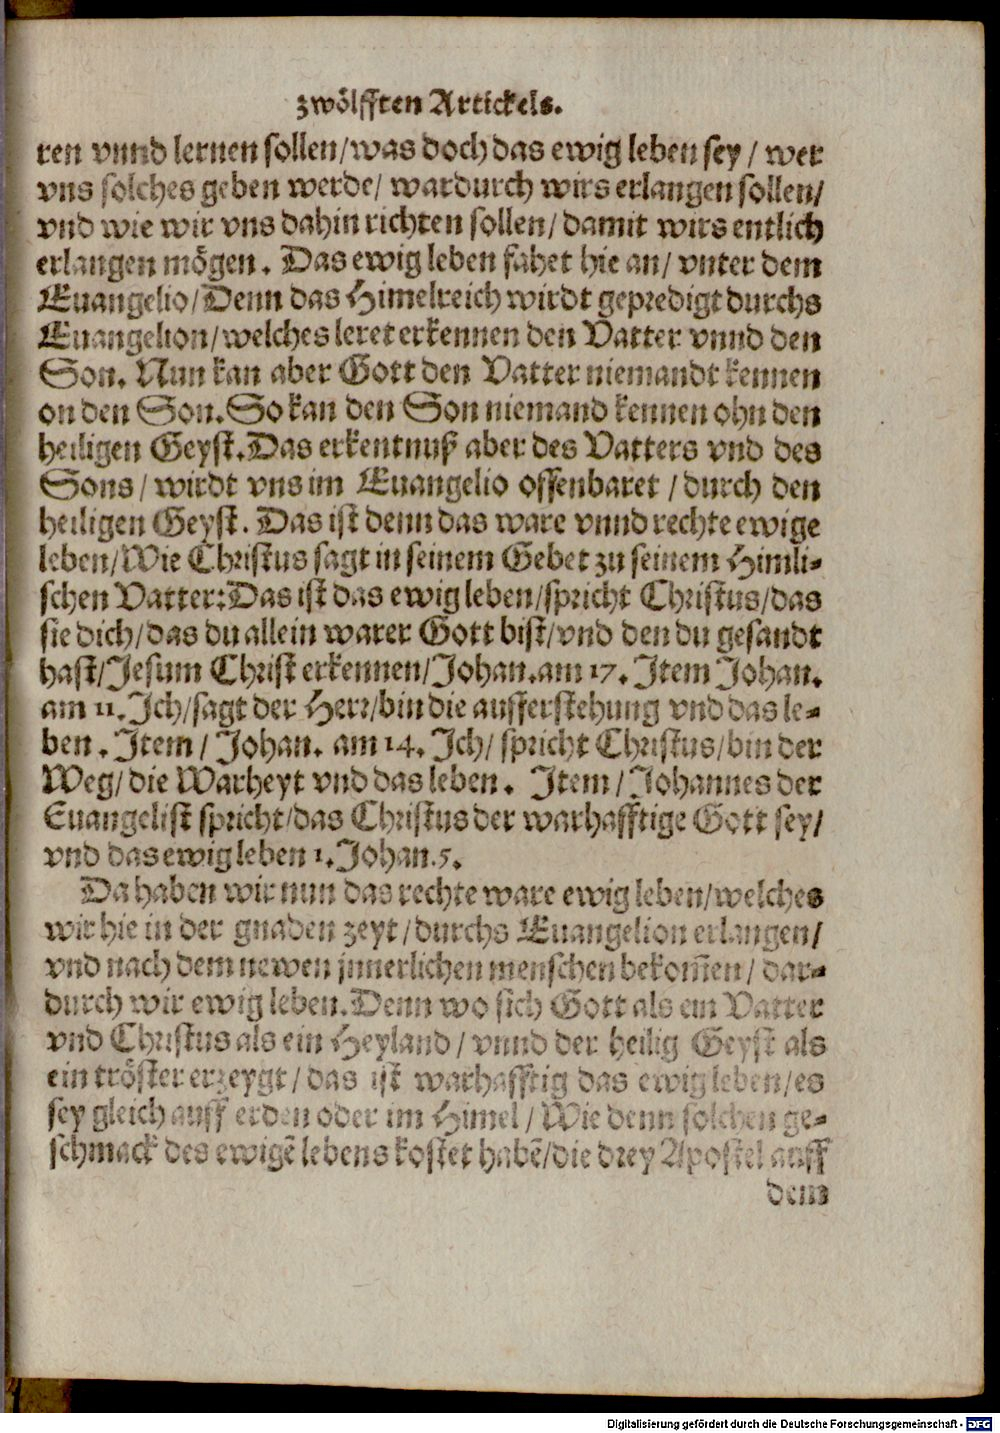 zwölfften Artickels.
ren vnnd lernen sollen/was doch das ewig leben sey / wer
vns solches geben werde/ wardurch wirs erlangen sollen/
vnd wie wir vns dahin richten sollen/ damit wirs entlich
erlangen mögen. Das ewig leben fahet hie an/ vnter dem
Euangelio/Denn das Himelreich wirdt gepredigt durchs
Euangelion/welches leret erkennen den Vatter vnnd den
Son. Nun kan aber Gott den Vatter niemandt kennen
on den Son. So kan den Son niemand kennen ohn den
heiligen Geyst. Das erkentnuß aber des Vatters vnd des
Sons/ wirdt vns im Euangelio offenbaret /durch den
heiligen Geyst. Das ist denn das ware vnnd rechte ewige
leben/Wie Christus sagt in seinem Gebet zu seinem Himli-
schen Vatter: Das ist das ewig leben/spricht Christus/das
sie dich/das du allein warer Gott bist/vnd den du gesandt
hast/Jesum Christ erkennen/Johan.am 17. Item Johan.
am 11. Ich/sagt der Herr/bin die aufferstehung vnd das le-
ben. Item / Johan. am 14. Ich/ spricht Christus/bin der
Weg/die Warheyt vnd das leben. Item/Johannes der
Euangelist spricht/das Christus der warhafftige Gott sey/
vnd das ewig leben 1. Johan.5.
Da haben wir nun das rechte ware ewig leben/welches
wir hie in der gnaden zeyt/durchs Euangelion erlangen/
vnd nach dem newen jnnerlichen menschen bekom̄en/ dar-
durch wir ewig leben. Denn wo sich Gott als ein Vatter
vnd Christus als ein Heyland/ vnnd der heilig Geyst als
ein tröster erzeygt/das ist warhafftig das ewig leben/es
sey gleich auff erden oder im Himel/Wie denn solchen ge-
schmack des ewigẽ lebens kostet habẽ/die drey Apostel auff
dem
Digitalisierung gefördert durch die Deutsche Forschungsgemeinschaft - DFG